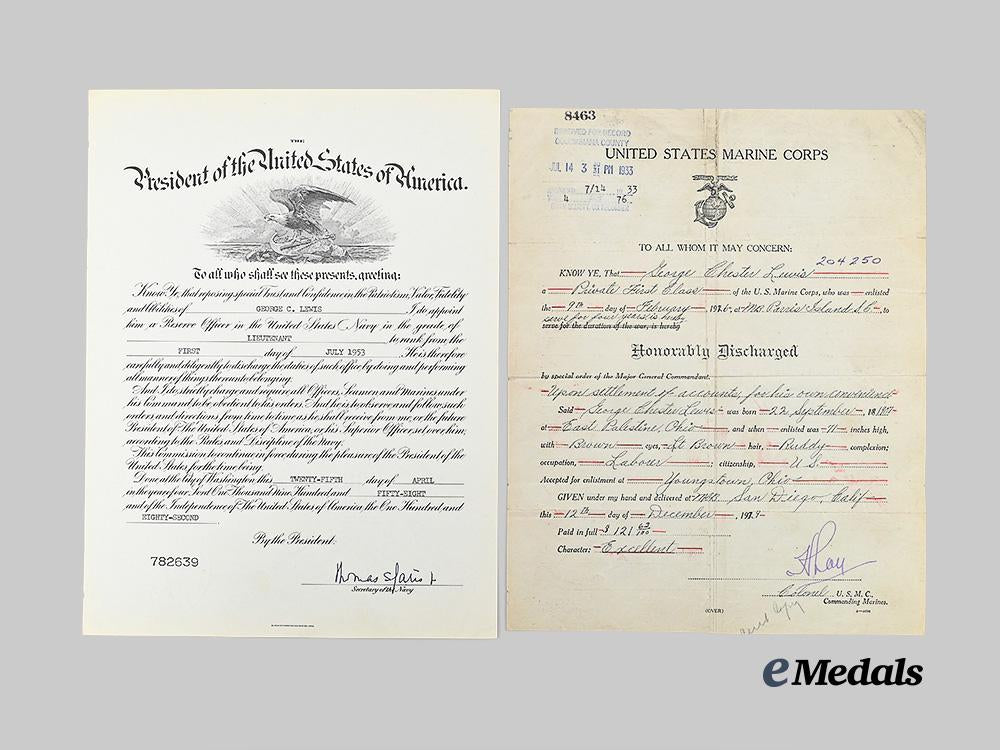 THE
President of the United States of America.
To all who shall see these presents, greeting:
Know Ye, that reposing special Trust and Confidence in the Patriotism, Valor, Fidelity
and Abilities of GEORGE C. LEWIS I do appoint
him a Reserve Officer in the United States Navy in the grade of
LIEUTENANT to rank from the
FIRST day of JULY 1953 He is therefore
carefully and diligently to discharge the duties of such office by doing and performing
all manner of things thereunto belonging.
And I do strictly charge and require all Officers, Seamen and Marines under
his Command to be obedient to his orders. And he is to observe and follow such
orders and directions from time to time as he shall receive from me, or the future
President of The United States of America, or his Superior Officer set over him,
according to the Rules and Discipline of the Navy.
This Commission to continue in force during the pleasure of the President of the
United States for the time being.
Done at the City of Washington this TWENTY-FIFTH day of APRIL
in the year of our Lord One Thousand Nine Hundred and FIFTY-EIGHT
and of the Independence of The United States of America the One Hundred and
EIGHTY-SECOND
By the President:
782639
Thomas S Gates Jr
Secretary of the Navy
8463
RECEIVED FOR RECORD
COLUMBIANA COUNTY
JUL 14 3 31 PM 1933
7/14 33
4 76
UNITED STATES MARINE CORPS
TO ALL WHOM IT MAY CONCERN:
204250
KNOW YE, That George Chester Lewis
a Private First Class of the U. S. Marine Corps, who was enlisted
the 9th day of February, 1926, at MB. Parris Island S.C., to
serve for four years is hereby
serve for the duration of the war, is hereby
Honorably Discharged
by special order of the Major General Commandant.
Upon settlement of accounts, for his own convenience
Said George Chester Lewis was born 22 September, 1907
at East Palestine, Ohio, and when enlisted was 71 inches high,
with Brown eyes, Lt Brown hair, Ruddy complexion;
occupation, Labour; citizenship, U S
Accepted for enlistment at Youngstown, Ohio
GIVEN under my hand and delivered at MB. San Diego, Calif
this 12th day of December, 1929
Paid in full $ 121 63/100
Character: Excellent
Colonel, U. S. M. C.,
Commanding Marines.
(OVER)
eMedals